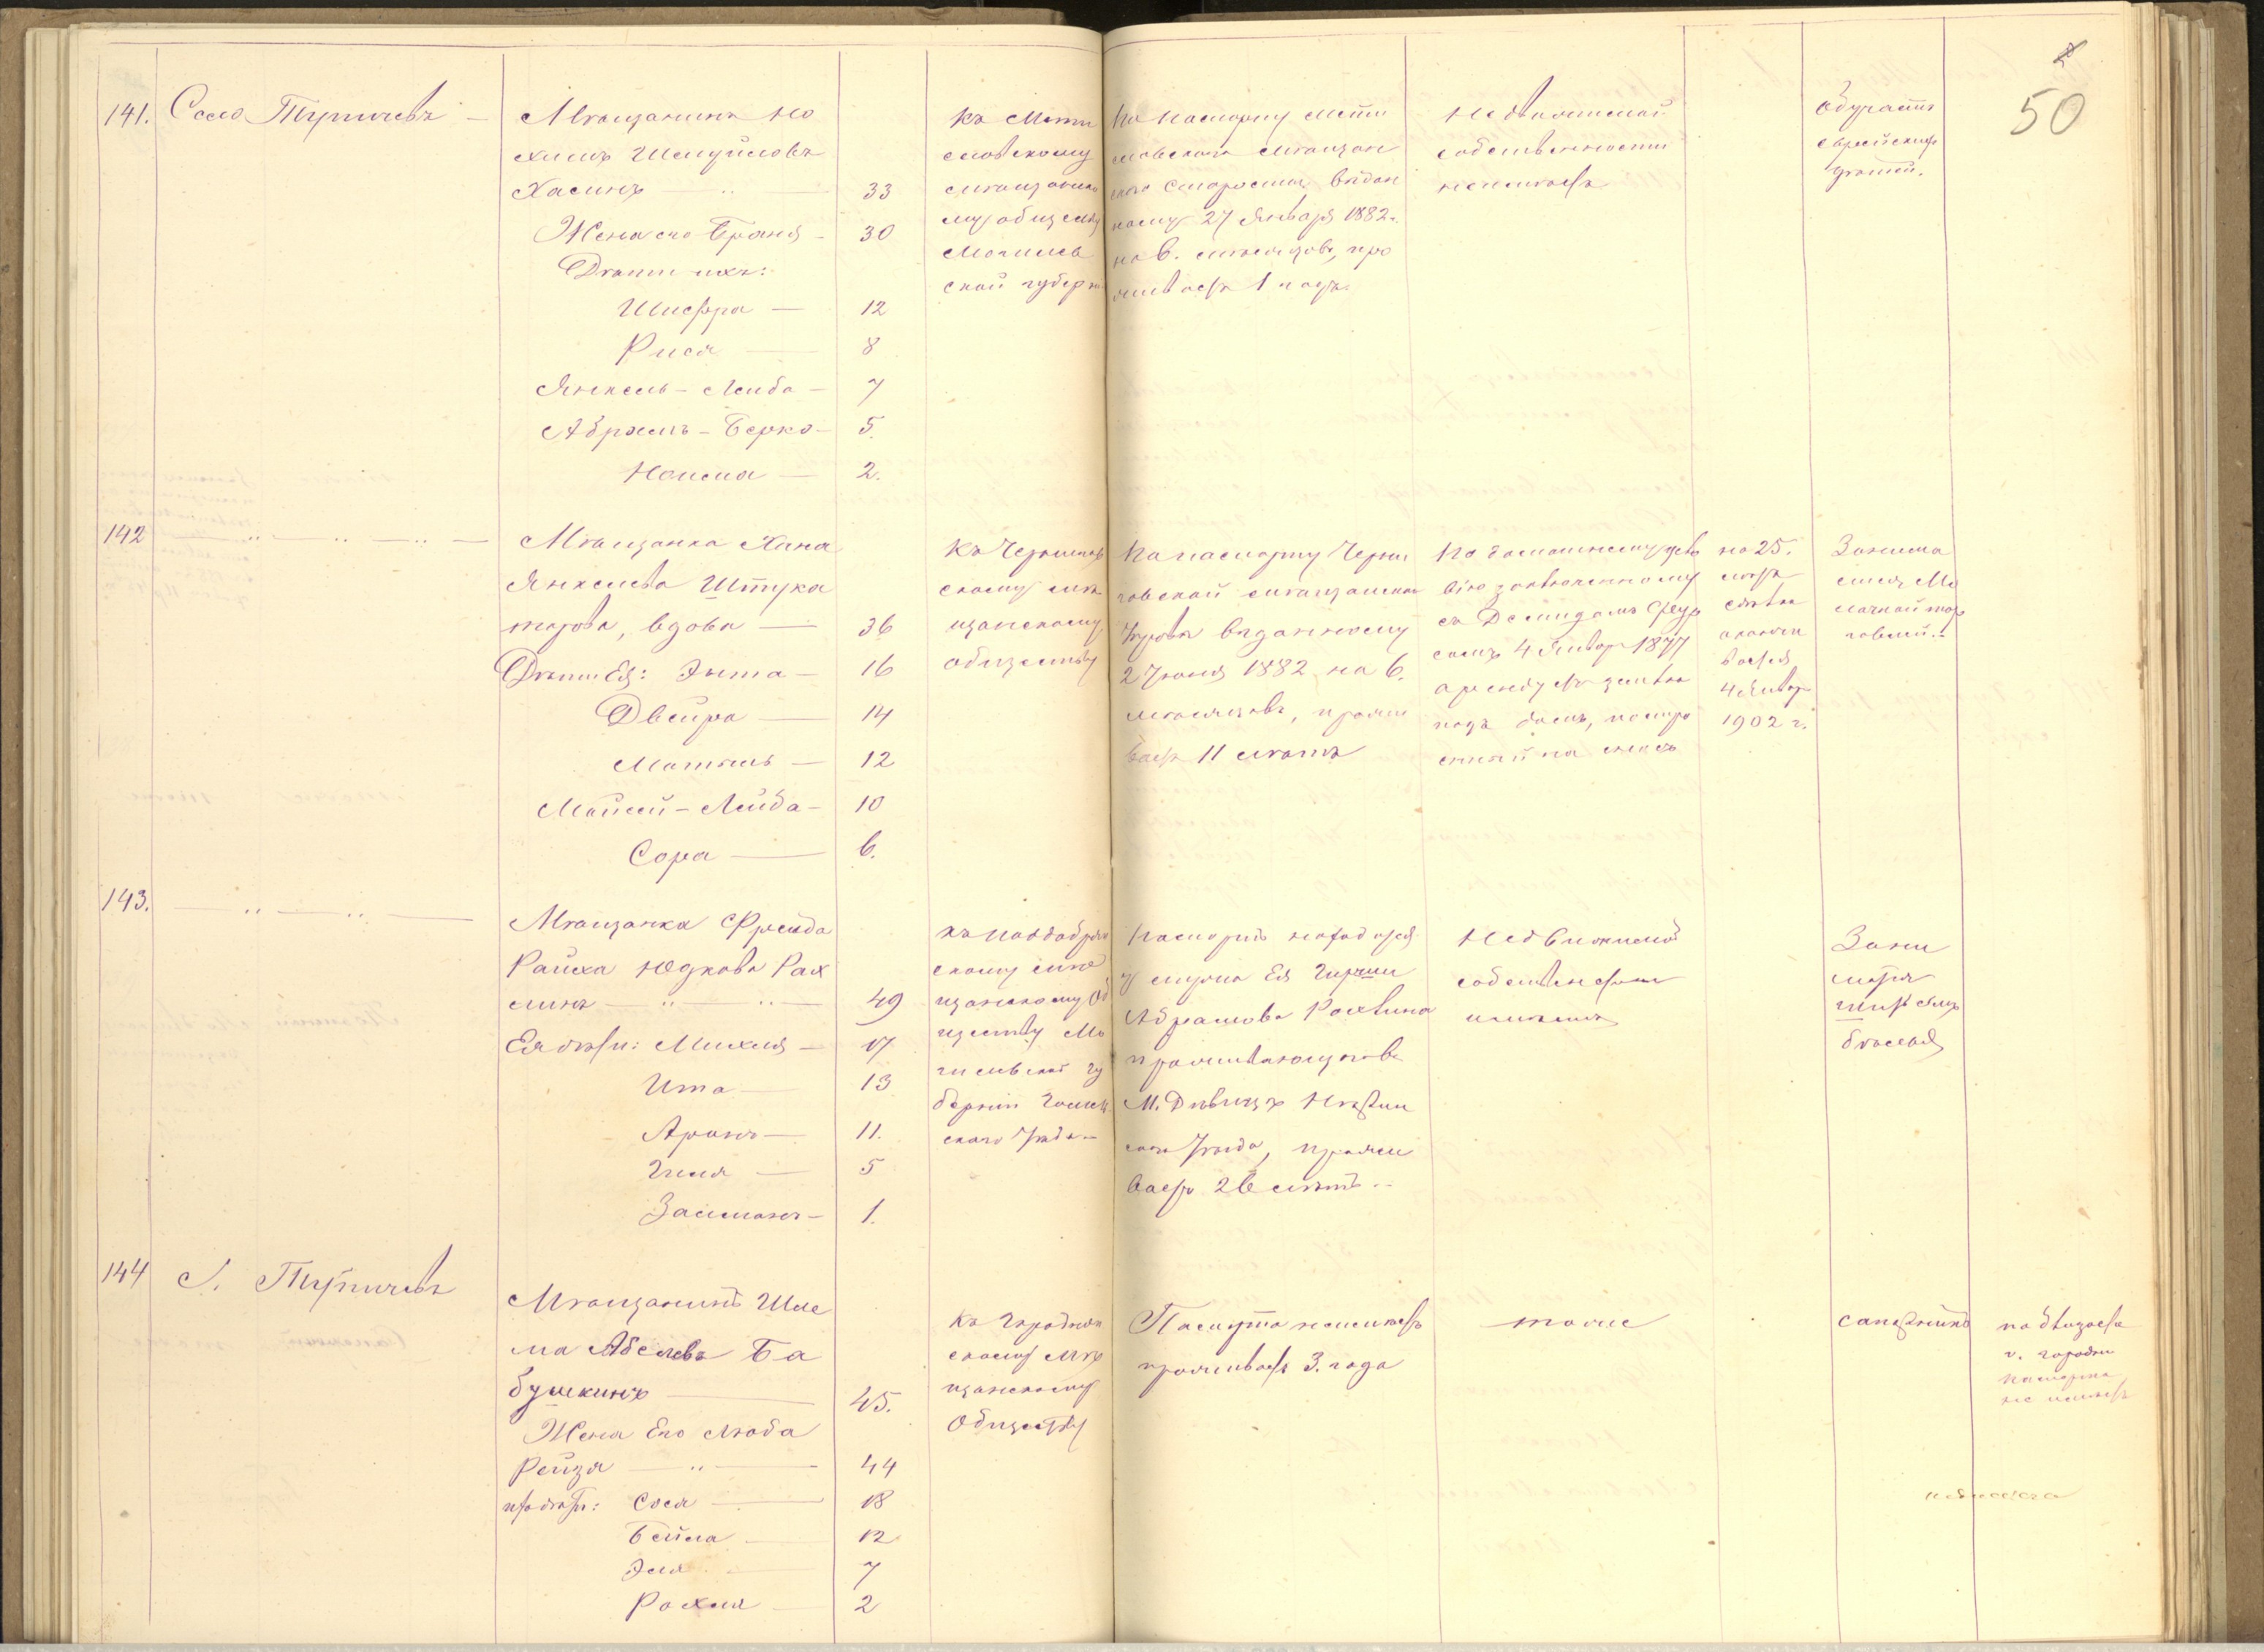 50
141. Село Тупичевъ
Мѣщанинъ Но
химъ Шмуйловъ
Хасинъ 33
Жена его Браня 30
Дѣти ихъ:
Шифра 12
Рися 8
Янкель-Лейба 7
Абрамъ-Берко 5.
2.
Къ Мсти
славскому
мѣщанско
му обществу
Могилев
ской губерн
По паспорту Мсти
славскаго мѣщан
скаго старосты выдан
ному 27 Января 1882.
на 6. мѣсяцовъ, про
живаетъ 1 годъ.
Недвижимой
собственности
неимѣетъ
Обучаетъ
еврейскихъ
дѣтей.
142
Мѣщанка Хана
Янкелева Штука
рова, вдова 36
Дѣти Ея: Эта 16
Двейра 14
12
Мойсей-Лейба 10
Сора 6.
Къ Чернигов
скому мѣ
щанскому
обществу
По паспорту Черни
говской мѣщанской
Управы выданному
2 Іюня 1882 на 6.
мѣсяцовъ, прожи
ваетъ 11 лѣтъ
По домашнему усло
вію заключенному
съ Демидомъ
4 Январ 1877
арендуетъ
подъ домъ, постро
енный на ней
на 25.
лѣтъ
оконч
4 Январ
1902 г.
Занима
ется Мо
лочной тор
говлей..
143.
Мѣщанка Фрейда
Райха Юдкова Рах
линъ 49
Ея дѣти: Михля 17
Ита 13
Аронъ 11.
Гиля 5
Залманъ 1.
Къ Новобѣлиц
скому мѣ
щанскому Об
ществу Мо
гилевской гу
берніи Гомель
скаго Уѣзда
Паспортъ находится
у мужа Ея Гирши
Абрамова Рахлина
проживающаго въ
М. Дѣвицѣ Нѣжин
скаго Уѣзда, прожи
ваетъ 26 лѣтъ..
Недвижимой
собственности
неимѣетъ
Зани
мается
шитьемъ
бѣлья
144 С. Тупичевъ
Мѣщанинъ Шле
ма Абелевъ Ба
бушкинъ 45.
Жена Его Люба
Рейза 44
Сося 18
Бейла 12
Эля 7
Рохля 2
Къ Городнян
скому Мѣ
щанскому
Обществу
Паспорта неимѣетъ
проживаетъ 3. года
тоже
сапожникъ
г. Городни
паспорта
не имѣетъ